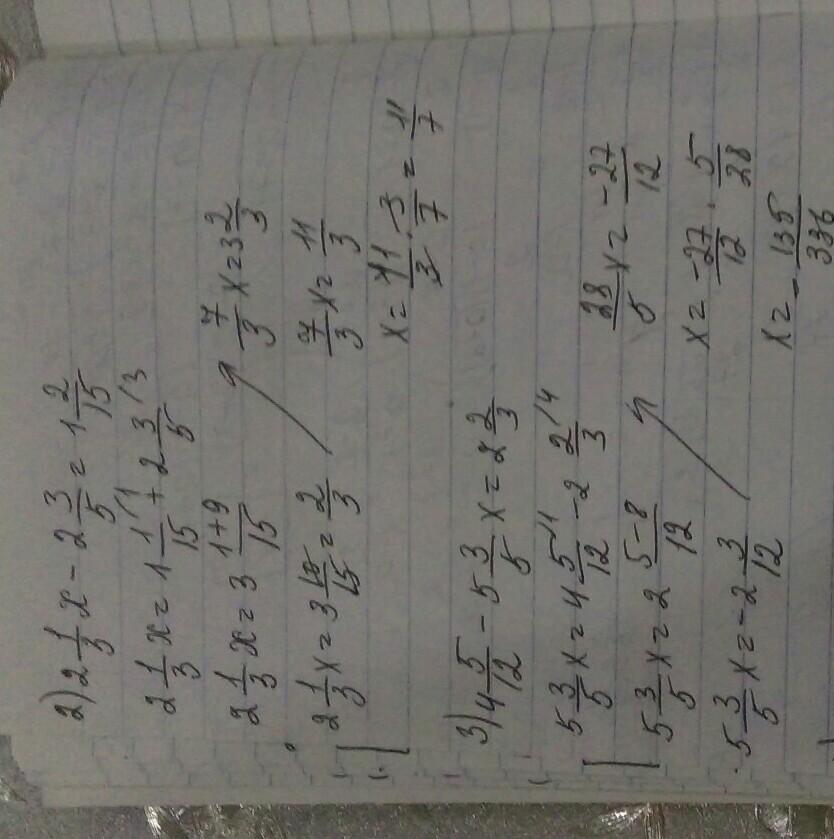 2) 2 1/3 x - 2 3/5 = 1 2/15
2 1/3 x = 1 1/15 /1 + 2 3/5 /3
2 1/3 x = 3 1+9/15
2 1/3 x = 3 10/15 = 2/3
7/3 x = 3 2/3
7/3 x = 11/3
x = 11/3 · 3/7 = 11/7
3) 4 5/12 - 5 3/5 x = 2 2/3
5 3/5 x = 4 5/12 /1 - 2 2/3 /4
5 3/5 x = 2 5-8/12
5 3/5 x = -2 3/12
28/5 x = -27/12
x = -27/12 · 5/28
x = - 135/336